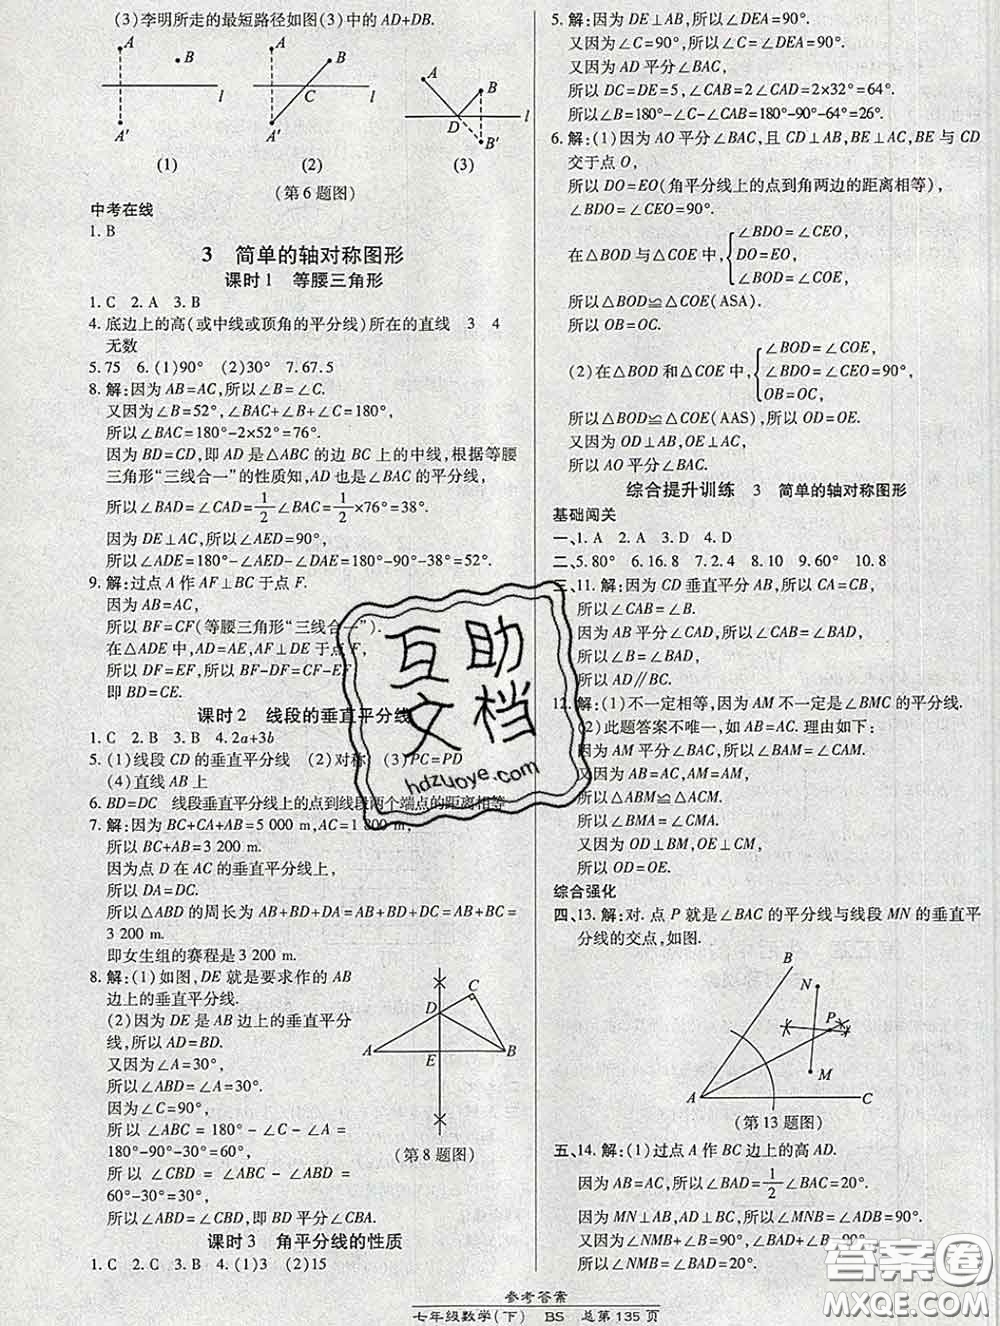 (3)李明所走的最短路径如图(3)中的AD+DB.
A B l A′
(1)
A B C l A′
(2)
A B D l B′
(3)
(第6题图)
中考在线
1. B
3 简单的轴对称图形
课时1 等腰三角形
1. C 2. A 3. B
4. 底边上的高(或中线或顶角的平分线)所在的直线 3 4
无数
5. 75 6. (1)90° (2)30° 7. 67.5
8. 解:因为AB=AC,所以∠B=∠C.
又因为∠B=52°,∠BAC+∠B+∠C=180°,
所以∠BAC=180°-2×52°=76°.
因为BD=CD,即AD是△ABC的边BC上的中线,根据等腰
三角形“三线合一”的性质知,AD也是∠BAC的平分线,
所以∠BAD=∠CAD=1/2∠BAC=1/2×76°=38°.
因为DE⊥AC,所以∠AED=90°,
所以∠ADE=180°-∠AED-∠DAE=180°-90°-38°=52°.
9. 解:过点A作AF⊥BC于点F.
因为AB=AC,
所以BF=CF(等腰三角形“三线合一”).
在△ADE中,AD=AE,AF⊥DE于点F,
所以DF=EF,所以BF-DF=CF-EF
即BD=CE.
课时2 线段的垂直平分线
1. C 2. B 3. B 4. 2a+3b
5. (1)线段CD的垂直平分线 (2)对称 (3)PC=PD
(4)直线AB上
6. BD=DC 线段垂直平分线上的点到线段两个端点的距离相等
7. 解:因为BC+CA+AB=5 000 m,AC=1 800 m,
所以BC+AB=3 200 m.
因为点D在AC的垂直平分线上,
所以DA=DC.
所以△ABD的周长为AB+BD+DA=AB+BD+DC=AB+BC=
3 200 m.
即女生组的赛程是3 200 m.
8. 解:(1)如图,DE就是要求作的AB
边上的垂直平分线.
(2)因为DE是AB边上的垂直平分
线,所以AD=BD.
又因为∠A=30°,
所以∠ABD=∠A=30°.
因为∠C=90°,
所以∠ABC=180°-∠A-∠C=
180°-90°-30°=60°,
所以∠CBD=∠ABC-∠ABD=
60°-30°=30°,
所以∠ABD=∠CBD,即BD平分∠CBA.
C D A E B
(第8题图)
课时3 角平分线的性质
1. C 2. C 3. B 4. (1)3 (2)15
5. 解:因为DE⊥AB,所以∠DEA=90°.
又因为∠C=90°,所以∠C=∠DEA=90°.
因为AD平分∠BAC,
所以DC=DE=5,∠CAB=2∠CAD=2×32°=64°.
所以∠B=180°-∠C-∠CAB=180°-90°-64°=26°.
6. 解:(1)因为AO平分∠BAC,且CD⊥AB,BE⊥AC,BE与CD
交于点O,
所以DO=EO(角平分线上的点到角两边的距离相等),
∠BDO=∠CEO=90°.
∠BDO=∠CEO,
在△BOD和△COE中,{DO=EO,
∠BOD=∠COE,
所以△BOD≌△COE(ASA).
所以OB=OC.
∠BOD=∠COE,
(2)在△BOD和△COE中,{∠BDO=∠CEO=90°,
OB=OC,
所以△BOD≌△COE(AAS),所以OD=OE.
又因为OD⊥AB,OE⊥AC,
所以AO平分∠BAC.
综合提升训练 3 简单的轴对称图形
基础闯关
一、1. A 2. A 3. D 4. D
二、5. 80° 6. 16.8 7. 2.4 8. 10 9. 60° 10. 8
三、11. 解:因为CD垂直平分AB,所以CA=CB,
所以∠CAB=∠B.
因为AB平分∠CAD,所以∠CAB=∠BAD,
所以∠B=∠BAD,
所以AD∥BC.
12. 解:(1)不一定相等,因为AM不一定是∠BMC的平分线.
(2)此题答案不唯一,如AB=AC. 理由如下:
因为AM平分∠BAC,所以∠BAM=∠CAM.
又因为AB=AC,AM=AM,
所以△ABM≌△ACM.
所以∠BMA=∠CMA.
又因为OD⊥BM,OE⊥CM,
所以OD=OE.
综合强化
四、13. 解:对. 点P就是∠BAC的平分线与线段MN的垂直平
分线的交点,如图.
B N P M A C
(第13题图)
五、14. 解:(1)过点A作BC边上的高AD.
因为AB=AC,所以∠BAD=1/2∠BAC=20°.
因为MN⊥AB,AD⊥BC,所以∠NMB=∠BAD=20°.
又因为∠NMB+∠B=90°,∠BAD+∠B=90°,
所以∠NMB=∠BAD=20°.
参考答案
七年级数学(下) BS 总第135页
互助文档
hdzuoye.com
答案圈
MXQE.COM